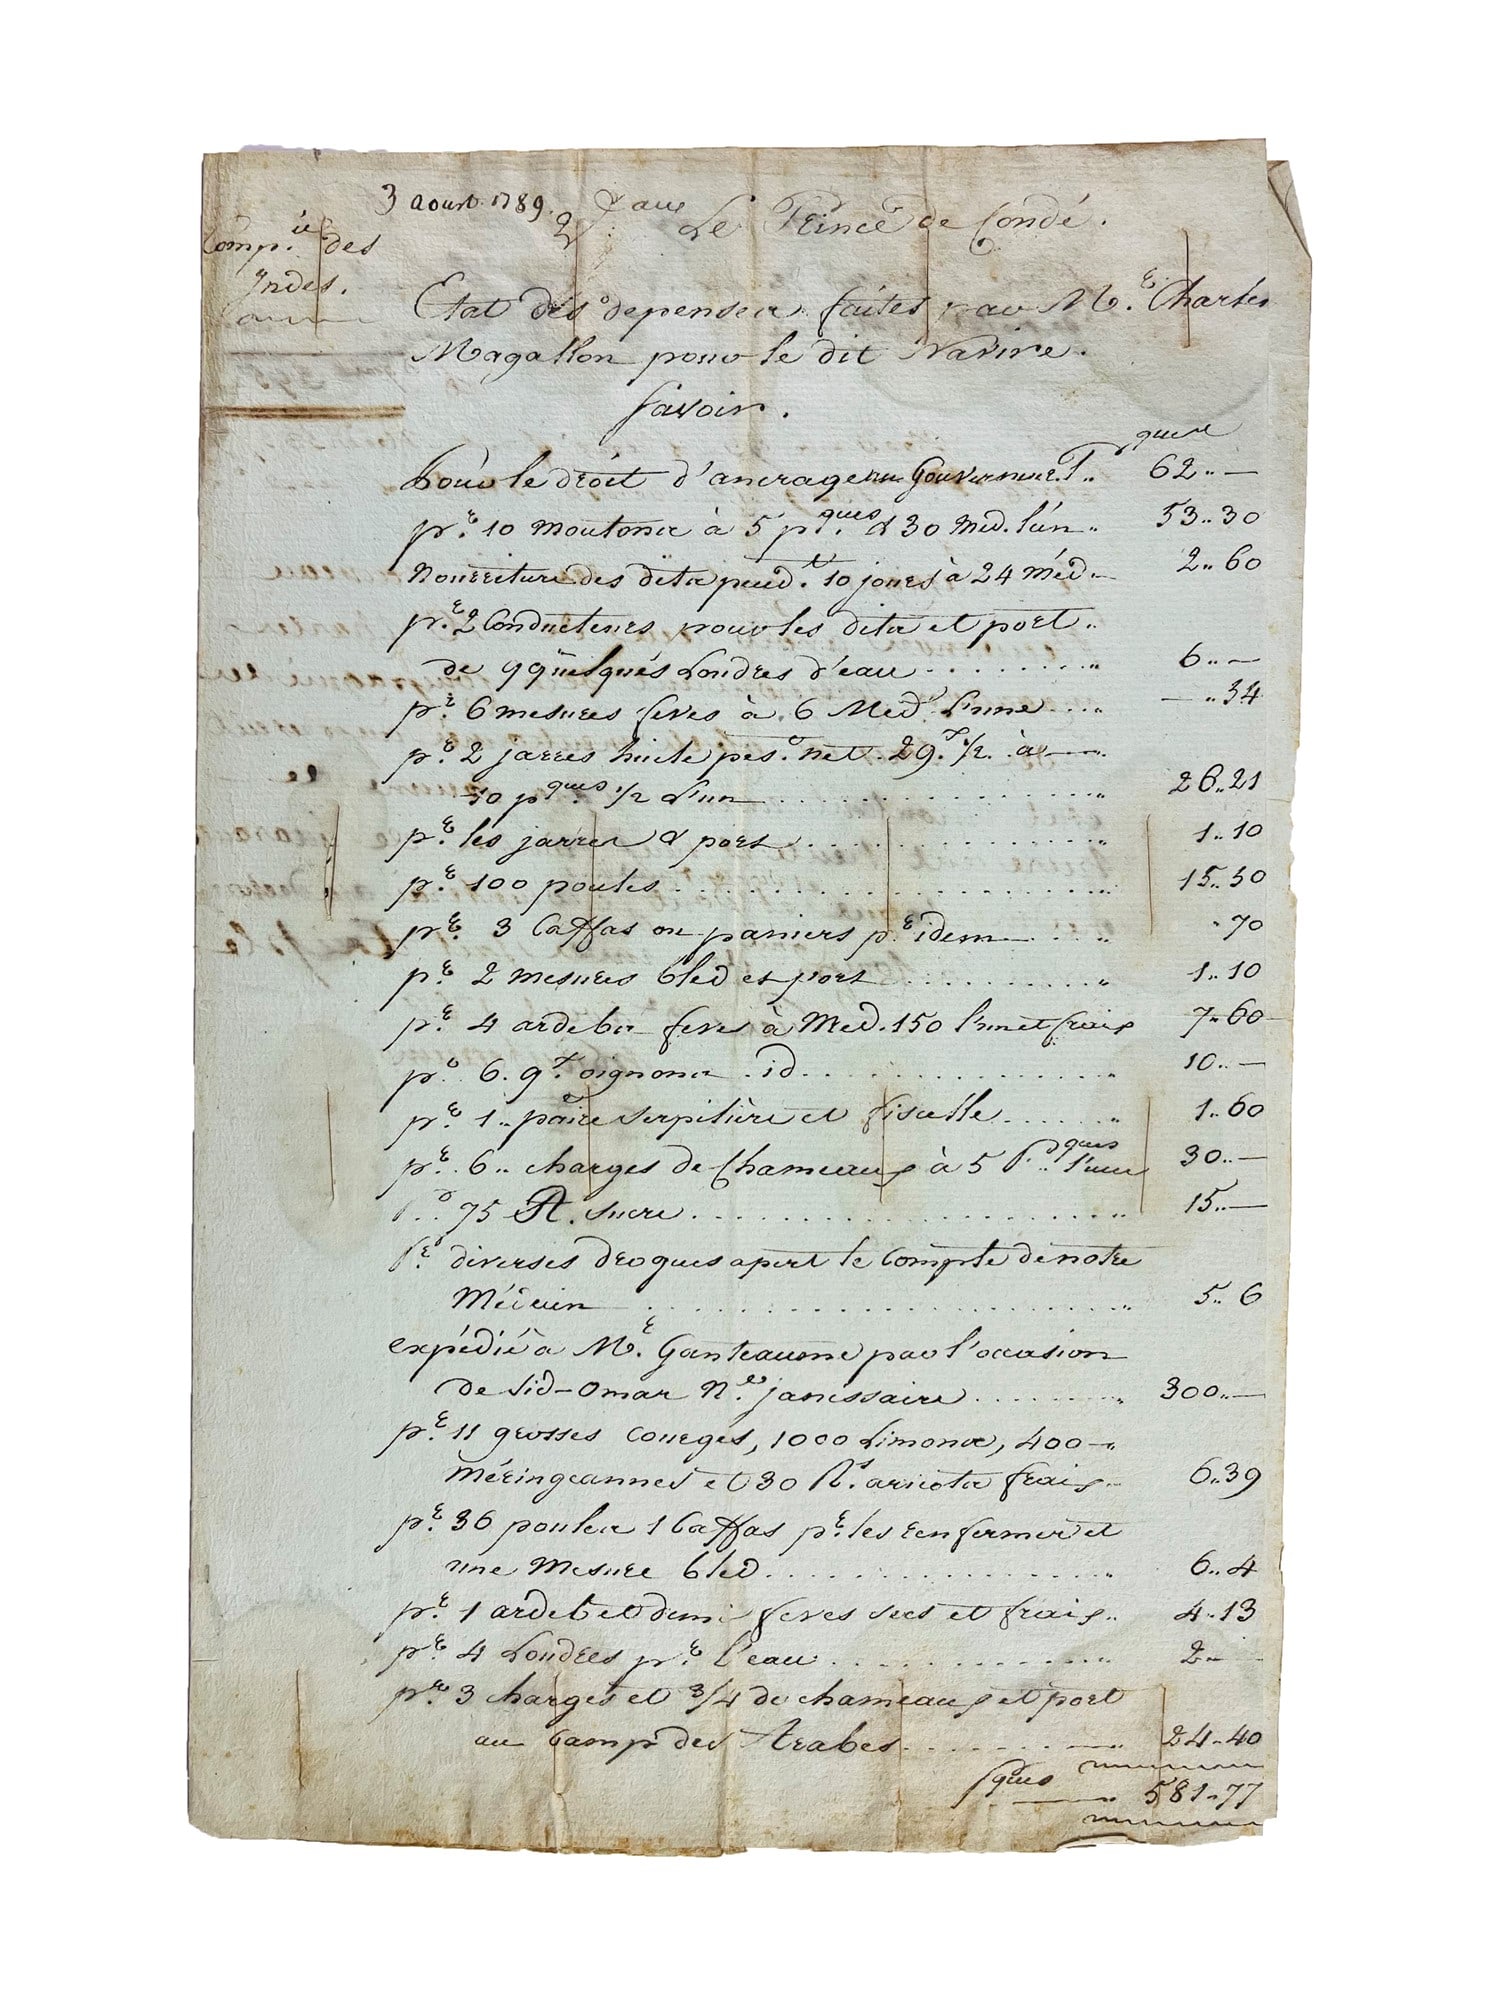 3 aoust 1789.
V.au Le Prince de Condé.
Comp.ie des
Indes.
Etat des depenses faites par M.r Charles
Magallon pour le dit Navire.
Savoir.
ques
Pour le droit d'ancrage au Gouvernem.t .. 62 .. —
p.r 10 moutons à 5 p.ques & 30 Med. l'un .. 53 .. 30
Nourriture des dits pend.t 10 jours à 24 Méd — 2 .. 60
p.r 2 Conducteurs pour les dits et port ..
de quelques Londres d'eau ........ 6 .. —
p.r 6 mesures feves à 6 Med.s l'une .... — .. 34
p.r 2 jarres huile pes.t net. 29.r 1/2. à —
10 p.ques 1/2 l'un ............ 26 .. 21
p.r les jarres & port ............ 1 .. 10
p.r 100 poules ............ 15 .. 50
p.r 3 Caffas ou paniers p.r idem .... .. 70
p.r 2 mesures bled et port .......... 1 .. 10
p.r 4 ardebs feves à Med. 150 l'un et frais 7 .. 60
p.r 6. q.x oignons id ............ 10 .. —
p.r 1 .. paire serpilière et fiscelle ...... 1 .. 60
p.r 6 .. charges de Chameaux à 5 P.ques l'une 30 .. —
P.r 75 R. sucre ............ 15 .. —
P.r diverses drogues apert le Compte de notre
Médecin ............ 5 .. 6
expédié à M.r Ganteaume par l'occasion
de Sid-Omar N.e janissaire ........ 300 .. —
p.r 11 grosses courges, 1000 Limons, 400 —
Méringeannes et 30 R.s aricots frais — 6 .. 39
p.r 36 poules 1 Caffas p.r les renfermer et
une Mesure bled ............ 6 .. 4
p.r 1 ardeb et demi feves secs et frais .. 4 .. 13
p.r 4 Londres p.r l'eau ............ 2 ..
p.r 3 charges et 3/4 de chameaux et port
au Camp des Arabes ........ 24 .. 40
Pques — 581 .. 77